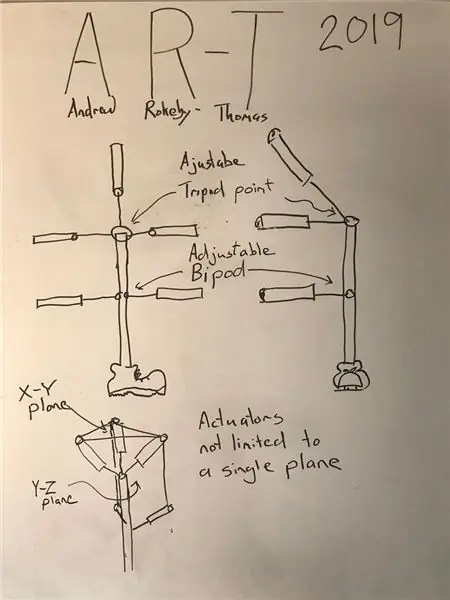 A R-T 2019
Andrew Rokeby- Thomas
Ajustabe
Tripod point
Adjustable
Bipod
X-Y
plane
Actuators
not limited to
a single plane
Y-Z
plane